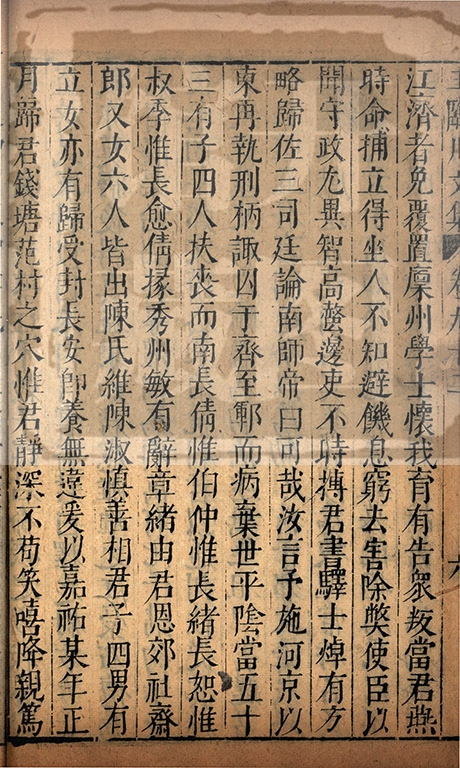 江濟者免覆置廩州學士懷我育有告衆叛當君燕
時命捕立得坐人不知避饑息窮去害除弊使臣以
聞守政尤異智高螫邊吏不時摶君書驛士焯有方
略歸佐三司廷論南師帝曰可哉汝言予施河京以
東再執刑柄諏囚于齊至鄆而病棄世平陰當五十
三有子四人扶喪而南長倩惟伯仲惟長緒長恕惟
叔季惟長愈倩掾秀州敏有辭章緒由君恩郊社齋
郎又女六人皆出陳氏維陳淑慎善相君子四男有
立女亦有歸受封長安即養無違爰以嘉祐某年正
月歸君錢塘范村之穴惟君靜深不苟笑嘻降親篤